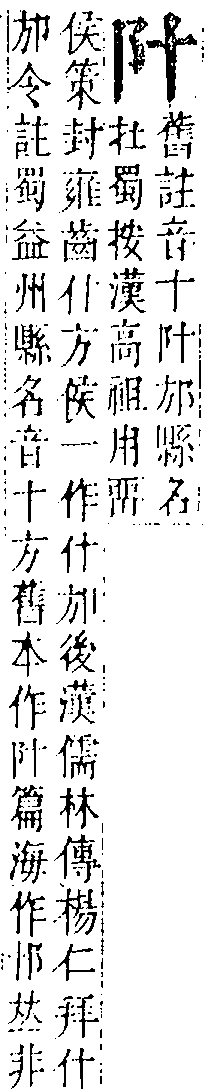 舊註音十邡縣名
在蜀按漢高祖用畱
侯策封雍齒什方侯一作什邡後漢儒林傳楊仁拜什
邡令註蜀益州縣名音十方舊本作篇海作𠀤非